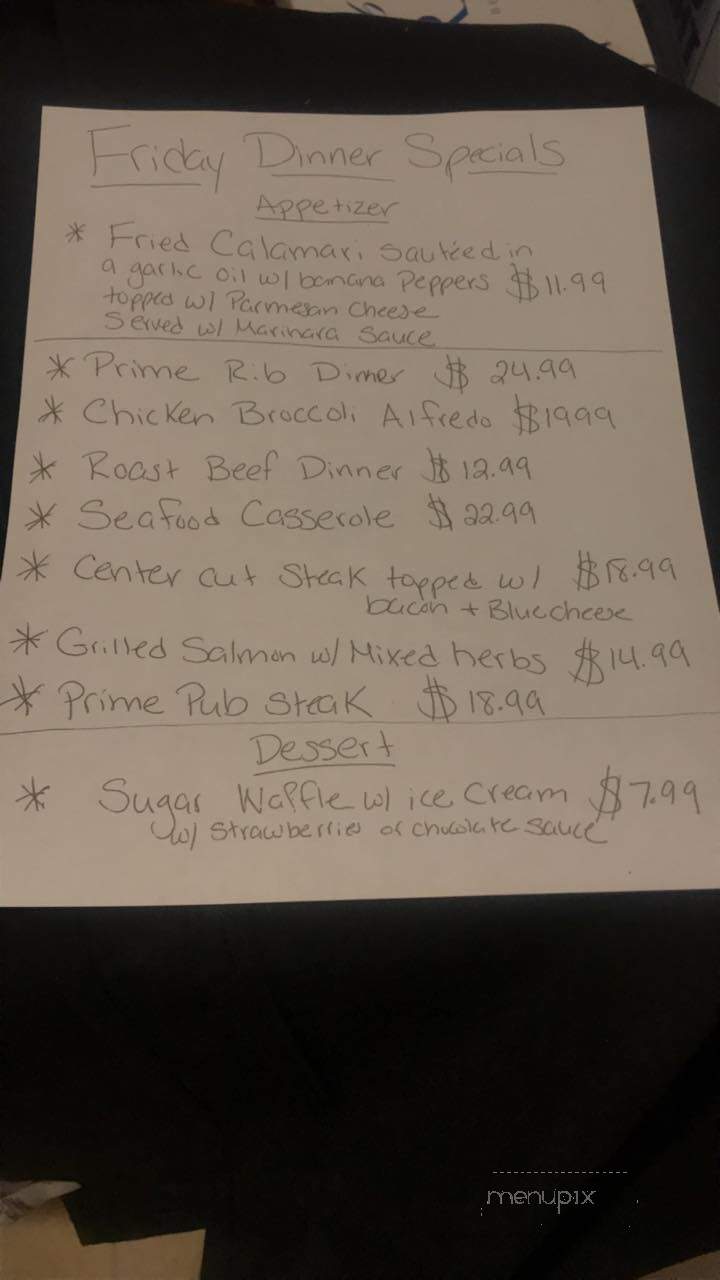 Friday Dinner Specials
Appetizer
* Fried Calamari, sautéed in
a garlic oil w/ banana Peppers $11.99
topped w/ Parmesan Cheese
Served w/ Marinara Sauce
* Prime Rib Dinner $ 24.99
* Chicken Broccoli Alfredo $1999
* Roast Beef Dinner $ 12.99
* Seafood Casserole $ 22.99
* Center cut Steak topped w/ $18.99
bacon + Bluecheese
* Grilled Salmon w/ Mixed herbs $14.99
* Prime Pub Steak $18.99
Dessert
* Sugar Waffle w/ ice cream $7.99
w/ Strawberries or chocolate sauce
menupix